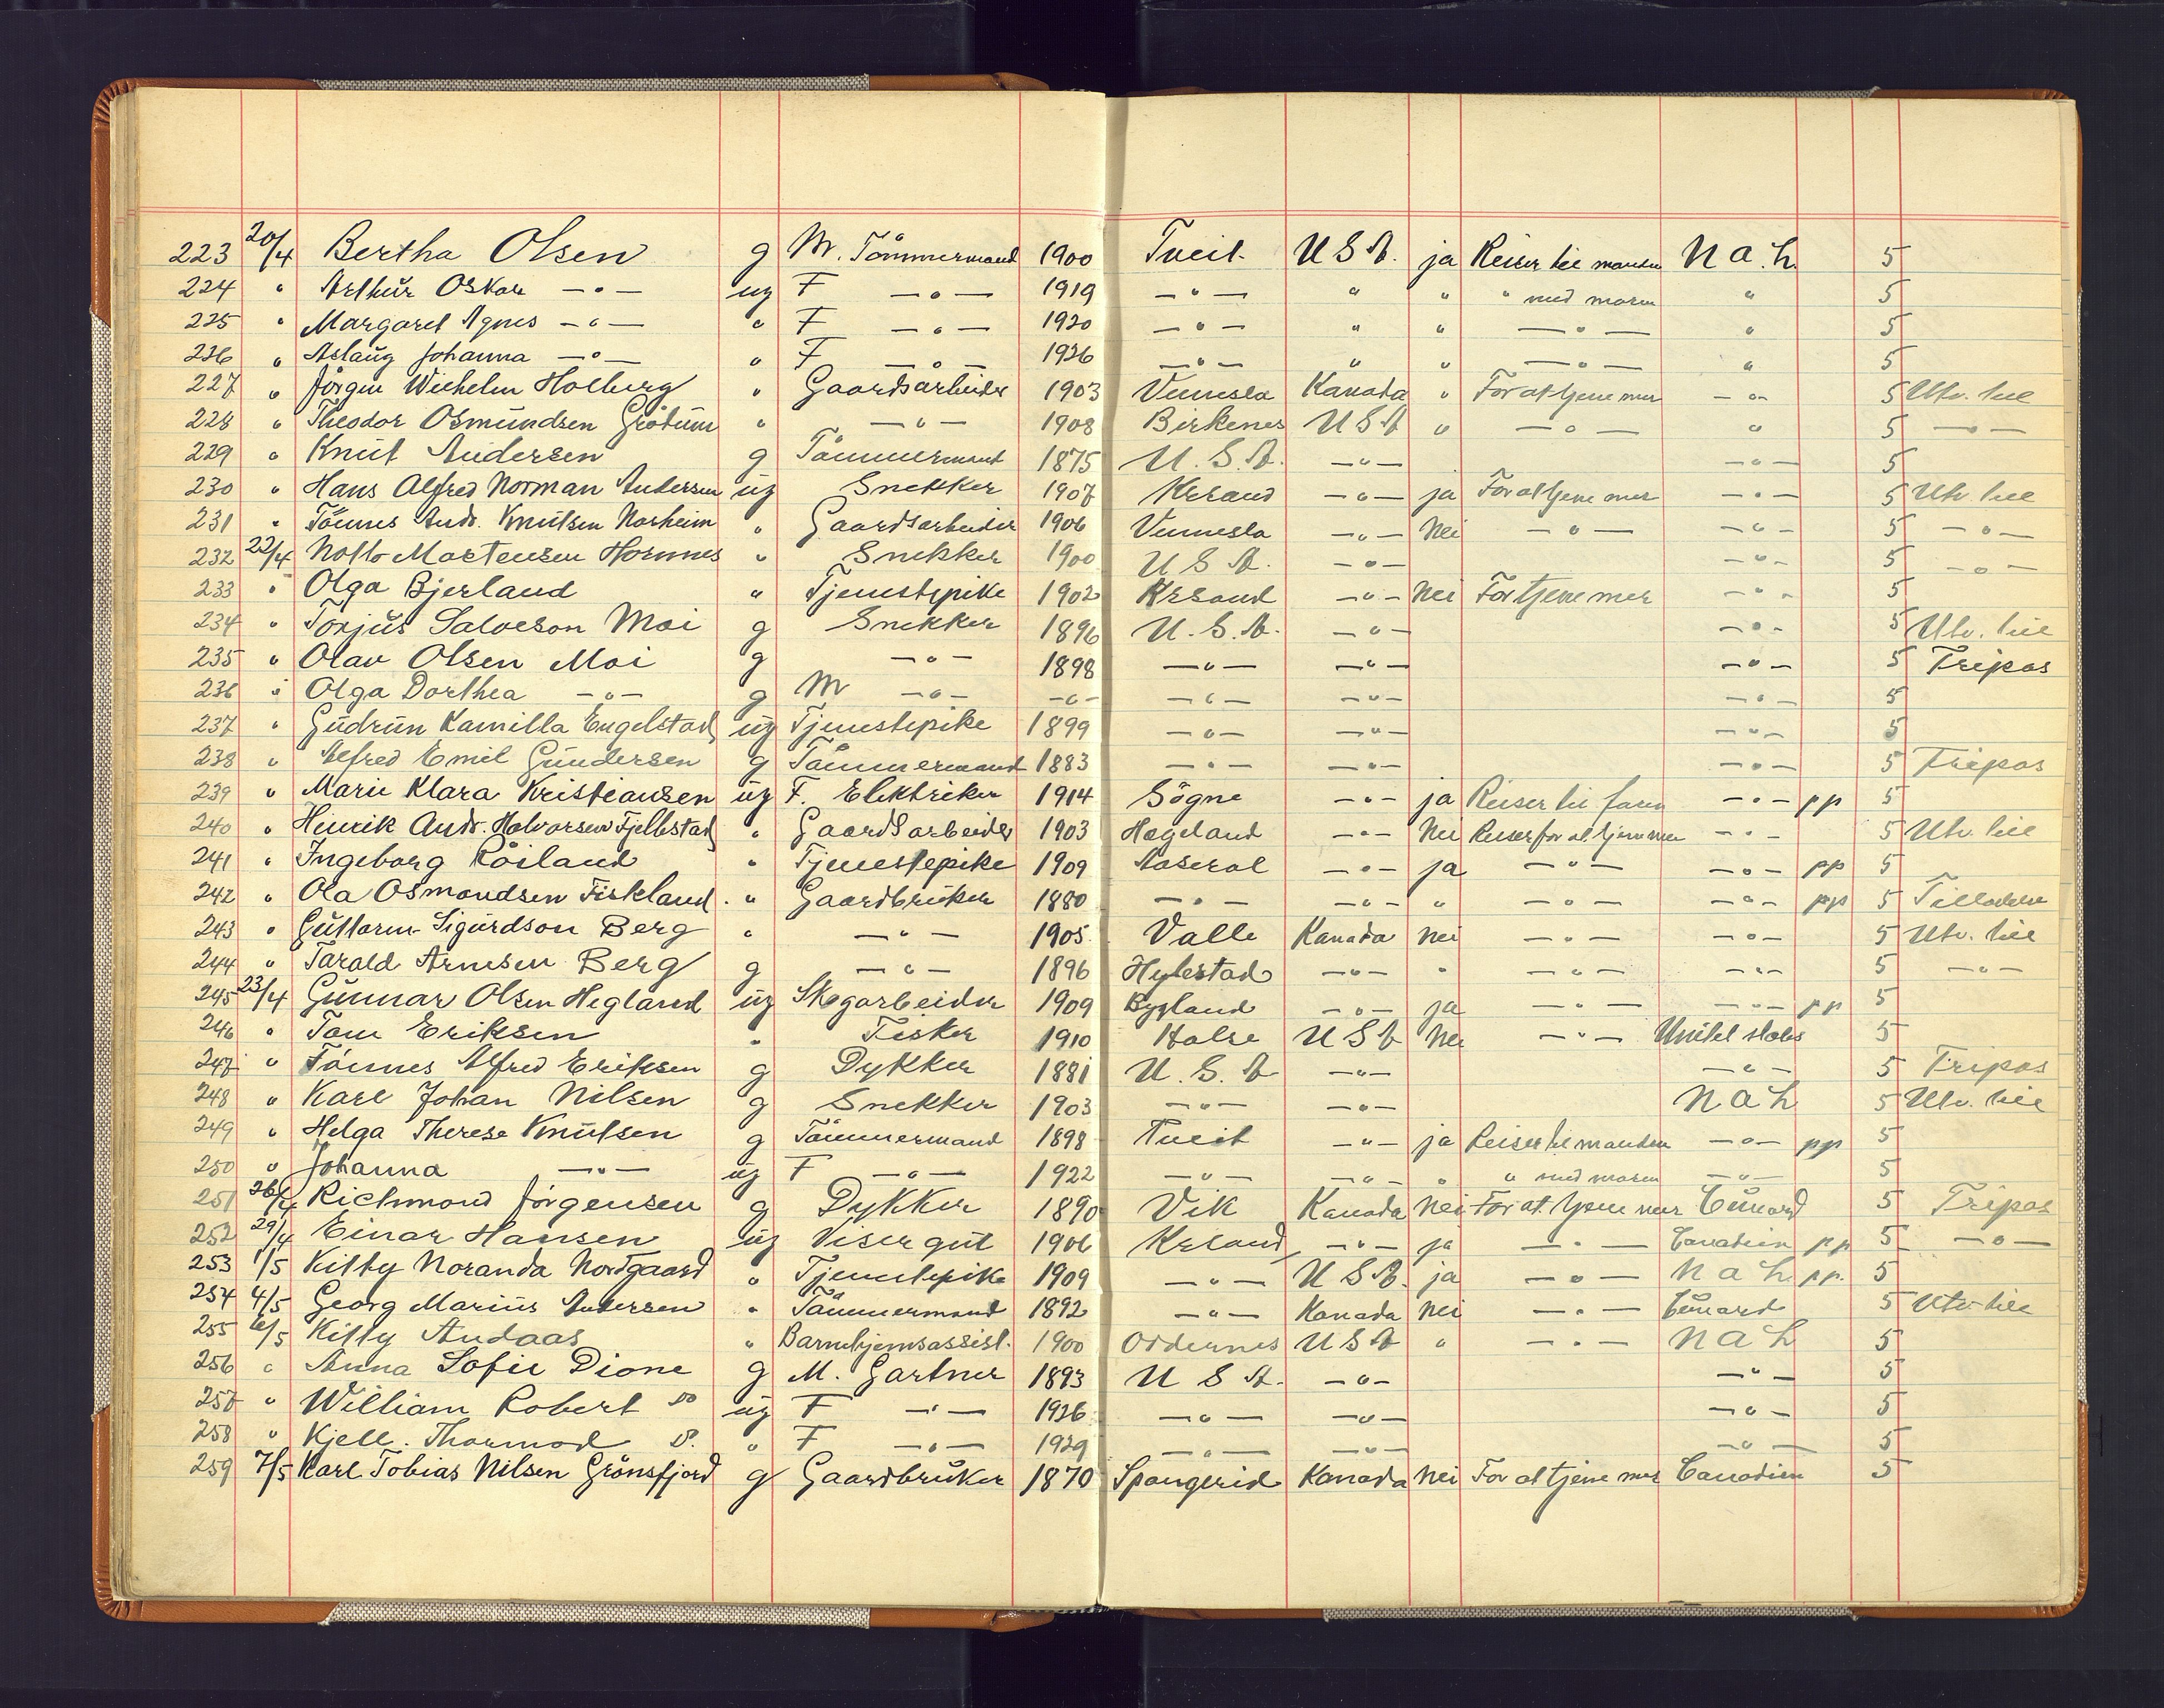 223 20/4 Bertha Olsen g M. Tömmermand 1900 Tveit U S A. ja Reiser til manden N a. L. 5
224 " Arthur Oskar —"— ug F —"— 1919 —"— " " " med moren " 5
225 " Margaret Agnes —"— " F —"— 1920 —"— " " —"— " 5
226 " Aslaug Johanna —"— " F —"— 1926 —"— " " —"— " 5
227 " Jörgen Wilhelm Holberg " Gaardsarbeider 1903 Vennesla Kanada " For at tjene mer —"— 5 Utv. till
228 " Theodor Osmundsen Grötum " —"— 1908 Birkenes U S A " —"— " 5 —"—
229 " Knut Andersen g Tömmermand 1875 U. S. A. —"— —"— 5
230 " Hans Alfred Norman Andersen ug Snekker 1907 Krsand —"— ja For at tjene mer —"— 5 Utv. till
231 " Tönnes Andr. Knutsen Norheim " Gaardsarbeider 1906 Vennesla —"— Nei —"— —"— 5 —"—
232 22/4 Notto Mortensen Hornnes " Snekker 1900 U S A. —"— —"— 5 —"—
233 " Olga Bjerland " Tjenestepike 1902 Krsand —"— Nei For tjene mer —"— 5
234 " Torjus Salveson Moi g Snekker 1896 U. S. A. —"— —"— 5 Utv. till
235 " Olav Olsen Moi g —"— 1898 —"— —"— —"— 5 Tripas
236 " Olga Dorthea —"— g M —"— —"— —"— —"— —"— 5
237 " Gudrun Kamilla Engelstad ug Tjenestepike 1899 —"— —"— —"— 5
238 " Alfred Emil Gundersen g Tömmermand 1883 —"— —"— —"— 5 Tripas
239 " Marie Klara Kristiansen ug F. Elektriker 1914 Sögne —"— ja Reiser til faren —"— pp 5
240 " Henrik Andr. Halvorsen Fjellestad " Gaardsarbeider 1903 Hægeland —"— Nei Reiser for at tjene mer —"— 5 Utv. till
241 " Ingeborg Röiland " Tjenestepike 1909 Aaseral —"— ja —"— —"— pp 5
242 " Ola Osmondsen Fiskland. " Gaardbruker 1880 —"— —"— " —"— —"— pp 5 Tilladelse
243 " Guttorm Sigurdson Berg " —"— 1905 Valle Kanada Nei —"— —"— 5 Utv. till
244 " Tarald Arnesen Berg g —"— 1896 Hylestad —"— " —"— —"— 5 —"—
245 23/4 Gunnar Olsen Hegland ug Skogarbeider 1909 Bygland —"— ja —"— —"— pp 5
246 " Tom Eriksen " Fisker 1910 Halse U S A Nei —"— United states 5
247 " Tönnes Alfred Eriksen g Dykker 1881 U. S. A —"— —"— 5 Tripas
248 " Karl Johan Nilsen g Snekker 1903 —"— —"— N a L 5 Utv. till
249 " Helga Therese Knutsen g Tömmermand 1898 Tveit —"— ja Reiser til manden —"— pp 5
250 " Johanna —"— ug F —"— 1922 —"— —"— " " med moren —"— 5
251 26/4 Richmond Jörgensen g Dykker 1890 Vik Kanada Nei For at tjene mer Cunard 5 Tripas
252 29/4 Einar Hansen ug Visergut 1906 Krsand —"— ja —"— Canadien pp 5 —"—
253 1/5 Kitty Noranda Nordgaard " Tjenestepike 1909 —"— U S A. ja —"— N a L pp. 5
254 4/5 Georg Marius Andersen " Tömmermand 1892 —"— Kanada Nei —"— Cunard 5 Utv till
255 6/5 Kitty Andaas " Barnehjemsassist. 1900 Oddernes U S A " —"— N a L 5
256 " Anna Sofie Dione g M. Gartner 1893 U S A. —"— —"— 5
257 " William Robert Do ug F —"— 1926 —"— —"— —"— 5
258 " Kjell. Thormod D. " F —"— 1929 —"— —"— —"— 5
259 7/5 Karl Tobias Nilsen Grönsfjord g Gaardbruker 1870 Spangerid Kanada Nei For at tjene mer Canadien 5